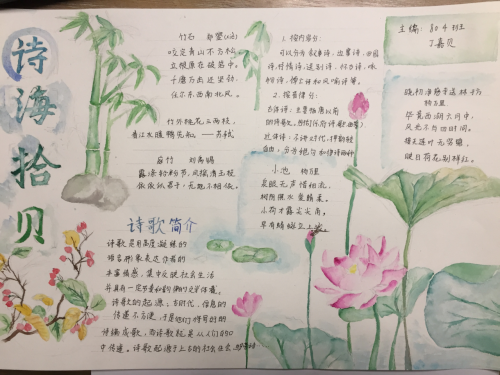 诗海拾贝
竹石 郑燮(xiè)
咬定青山不放松
立根原在破岩中。
千磨万击还坚劲,
任尔东西南北风。
竹外桃花三两枝,
春江水暖鸭先知。——苏轼
庭竹 刘禹锡
露涤铅粉节,风摇青玉枝。
依依似君子,无地不相宜。
诗歌简介
诗歌是用高度凝练的
语言形象表达作者的
丰富情感,集中反映社会生活
并具有一定节奏和韵律的文学体裁。
诗歌的起源
传递不方便,于是他们将写好的
诗编成歌,而诗歌就是从人们口口
中传递。诗歌起源于上古的社会生活
1.按内容分:
可以分为叙事诗、边塞诗、田园
诗、抒情诗、送别诗、怀古诗、咏
物诗、
2.按音律分:
自由,另分绝句和律诗两种
小池 杨万里
泉眼无声惜细流,
树阴照水爱晴柔。
小荷才露尖尖角,
早有蜻蜓立上头。
主编:初4班
丁嘉贝
晓出净慈寺送林子方
杨万里
毕竟西湖六月中,
风光不与四时同。
接天莲叶无穷碧,
映日荷花别样红。